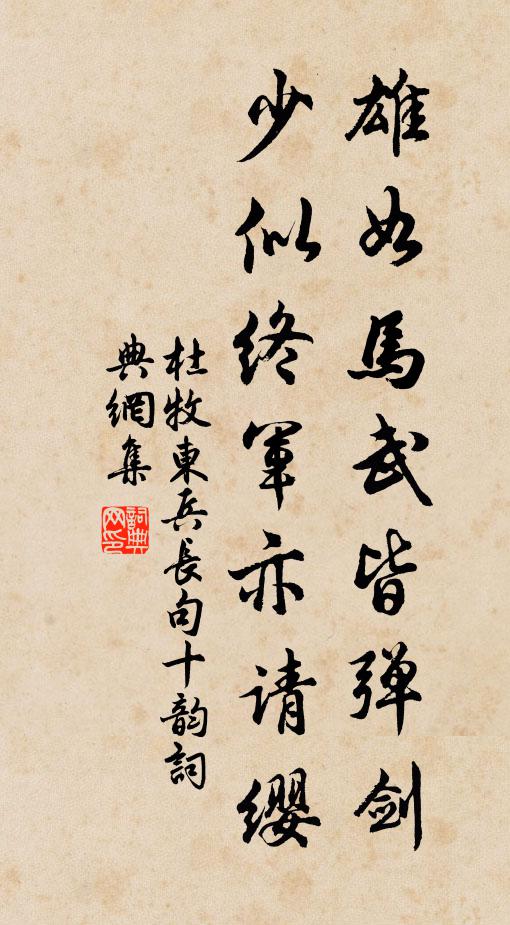 雄如馬武皆弹劍
少似终軍亦请缨
杜牧東兵長句十韵詞
典網集
詞典网印